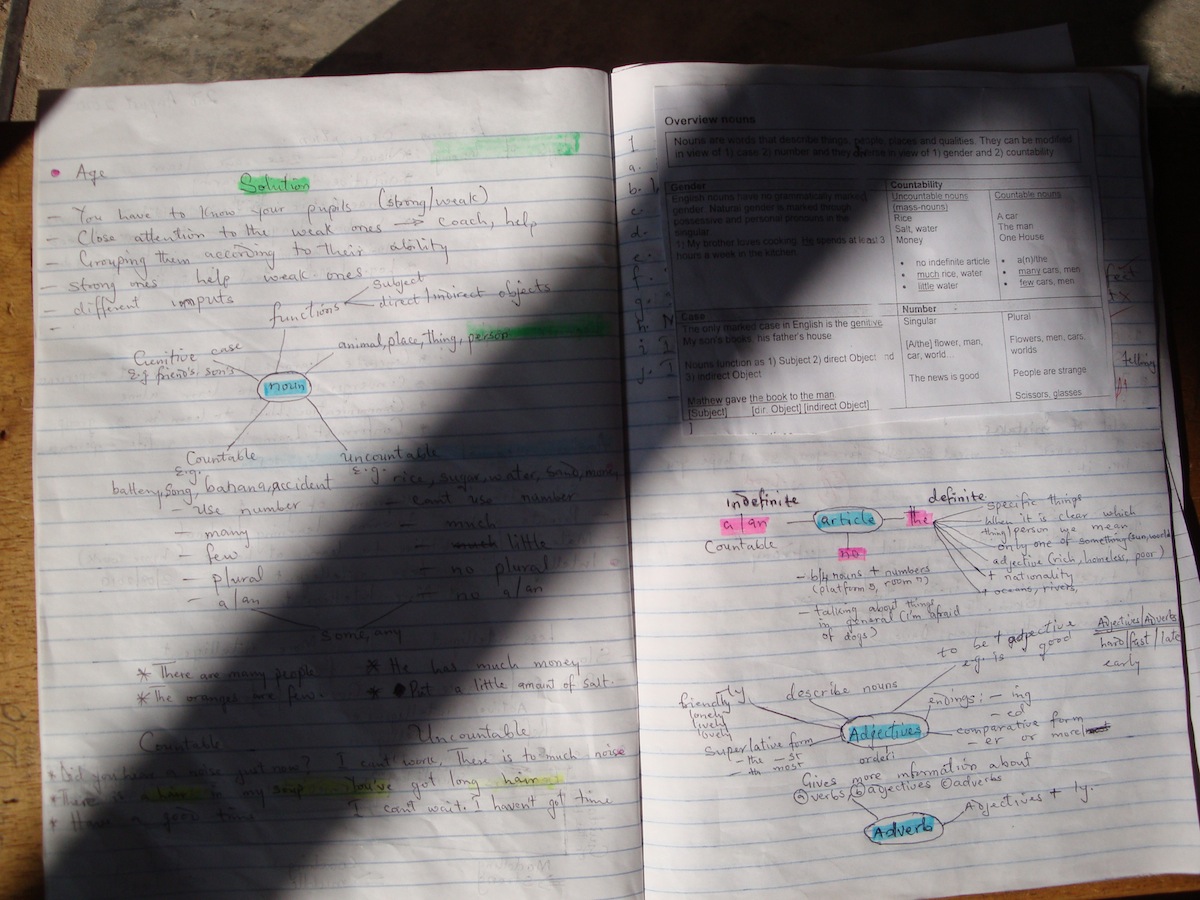 Age
Solution
- You have to know your pupils (strong/weak)
- Close attention to the weak ones → coach, help
- Grouping them according to their ability
- strong ones help weak ones
- different inputs
-
functions
Subject
direct/indirect objects
Genitive case
E.g friend's, son's
animal, place, thing, person
noun
Countable
E.g.
battery, song, banana, accident
- Use number
- many
- few
- plural
- a/an
Uncountable
E.g. rice, sugar, water, sand, money
- can't use number
- much
- little
- no plural
- no a/an
Some, any
* There are many people
* The oranges are few.
* He has much money
* Put a little amount of salt.
Countable
Uncountable
* Did you hear a noise just now? I can't work, There is to much noise
* There is a hair in my soup You've got long hair
* Have a good time I can't wait. I haven't got time
Overview nouns
Nouns are words that describe things, people, places and qualities. They can be modified
in view of 1) case 2) number and they in view of 1) gender and 2) countability
Gender
English nouns have no grammatically marked
gender. Natural gender is marked through
possessive and personal pronouns in the
singular
1) My brother loves cooking. He spends at least 3
hours a week in the kitchen.
Countability
Uncountable nouns
(mass-nouns)
Rice
Salt, water
Money
• no indefinite article
• much rice, water
• little water
Countable nouns
A car
The man
One House
• a(n)/the
• many cars, men
• few cars, men
Case
The only marked case in English is the genitive
My son's books, his father's house
Nouns function as 1) Subject 2) direct Object nd
3) indirect Object
Mathew gave the book to the man
[Subject] [dir. Object] [indirect Object]
Number
Singular
[A/the] flower, man,
car, world...
The news is good
Plural
Flowers, men, cars,
worlds
People are strange
Scissors, glasses
1
a.
b.
c.
d.
e.
f.
g.
h.
i.
j.
indefinite
a/an
Countable
article
definite
the
specific things
when it is clear which
thing/person we mean
only one of something (sun, world
adjective (rich, homeless, poor)
+ nationality
+ oceans, rivers,
no
- b/4 nouns + numbers
(platform 5, room 7)
- talking about things
in general (I'm afraid
of dogs)
to be + adjective
e.g. is good
Adjectives/Adverbs
hard/fast/late
early
friendly
lonely
lively
lovely
ly
describe nouns
Adjectives
endings: - ing
- ed
comparative form
- er or more
Superlative form
- the - st
- th most
order:
Gives more information about
(a) verbs, (b) adjectives (c) adverbs
Adverb
Adjectives + ly.